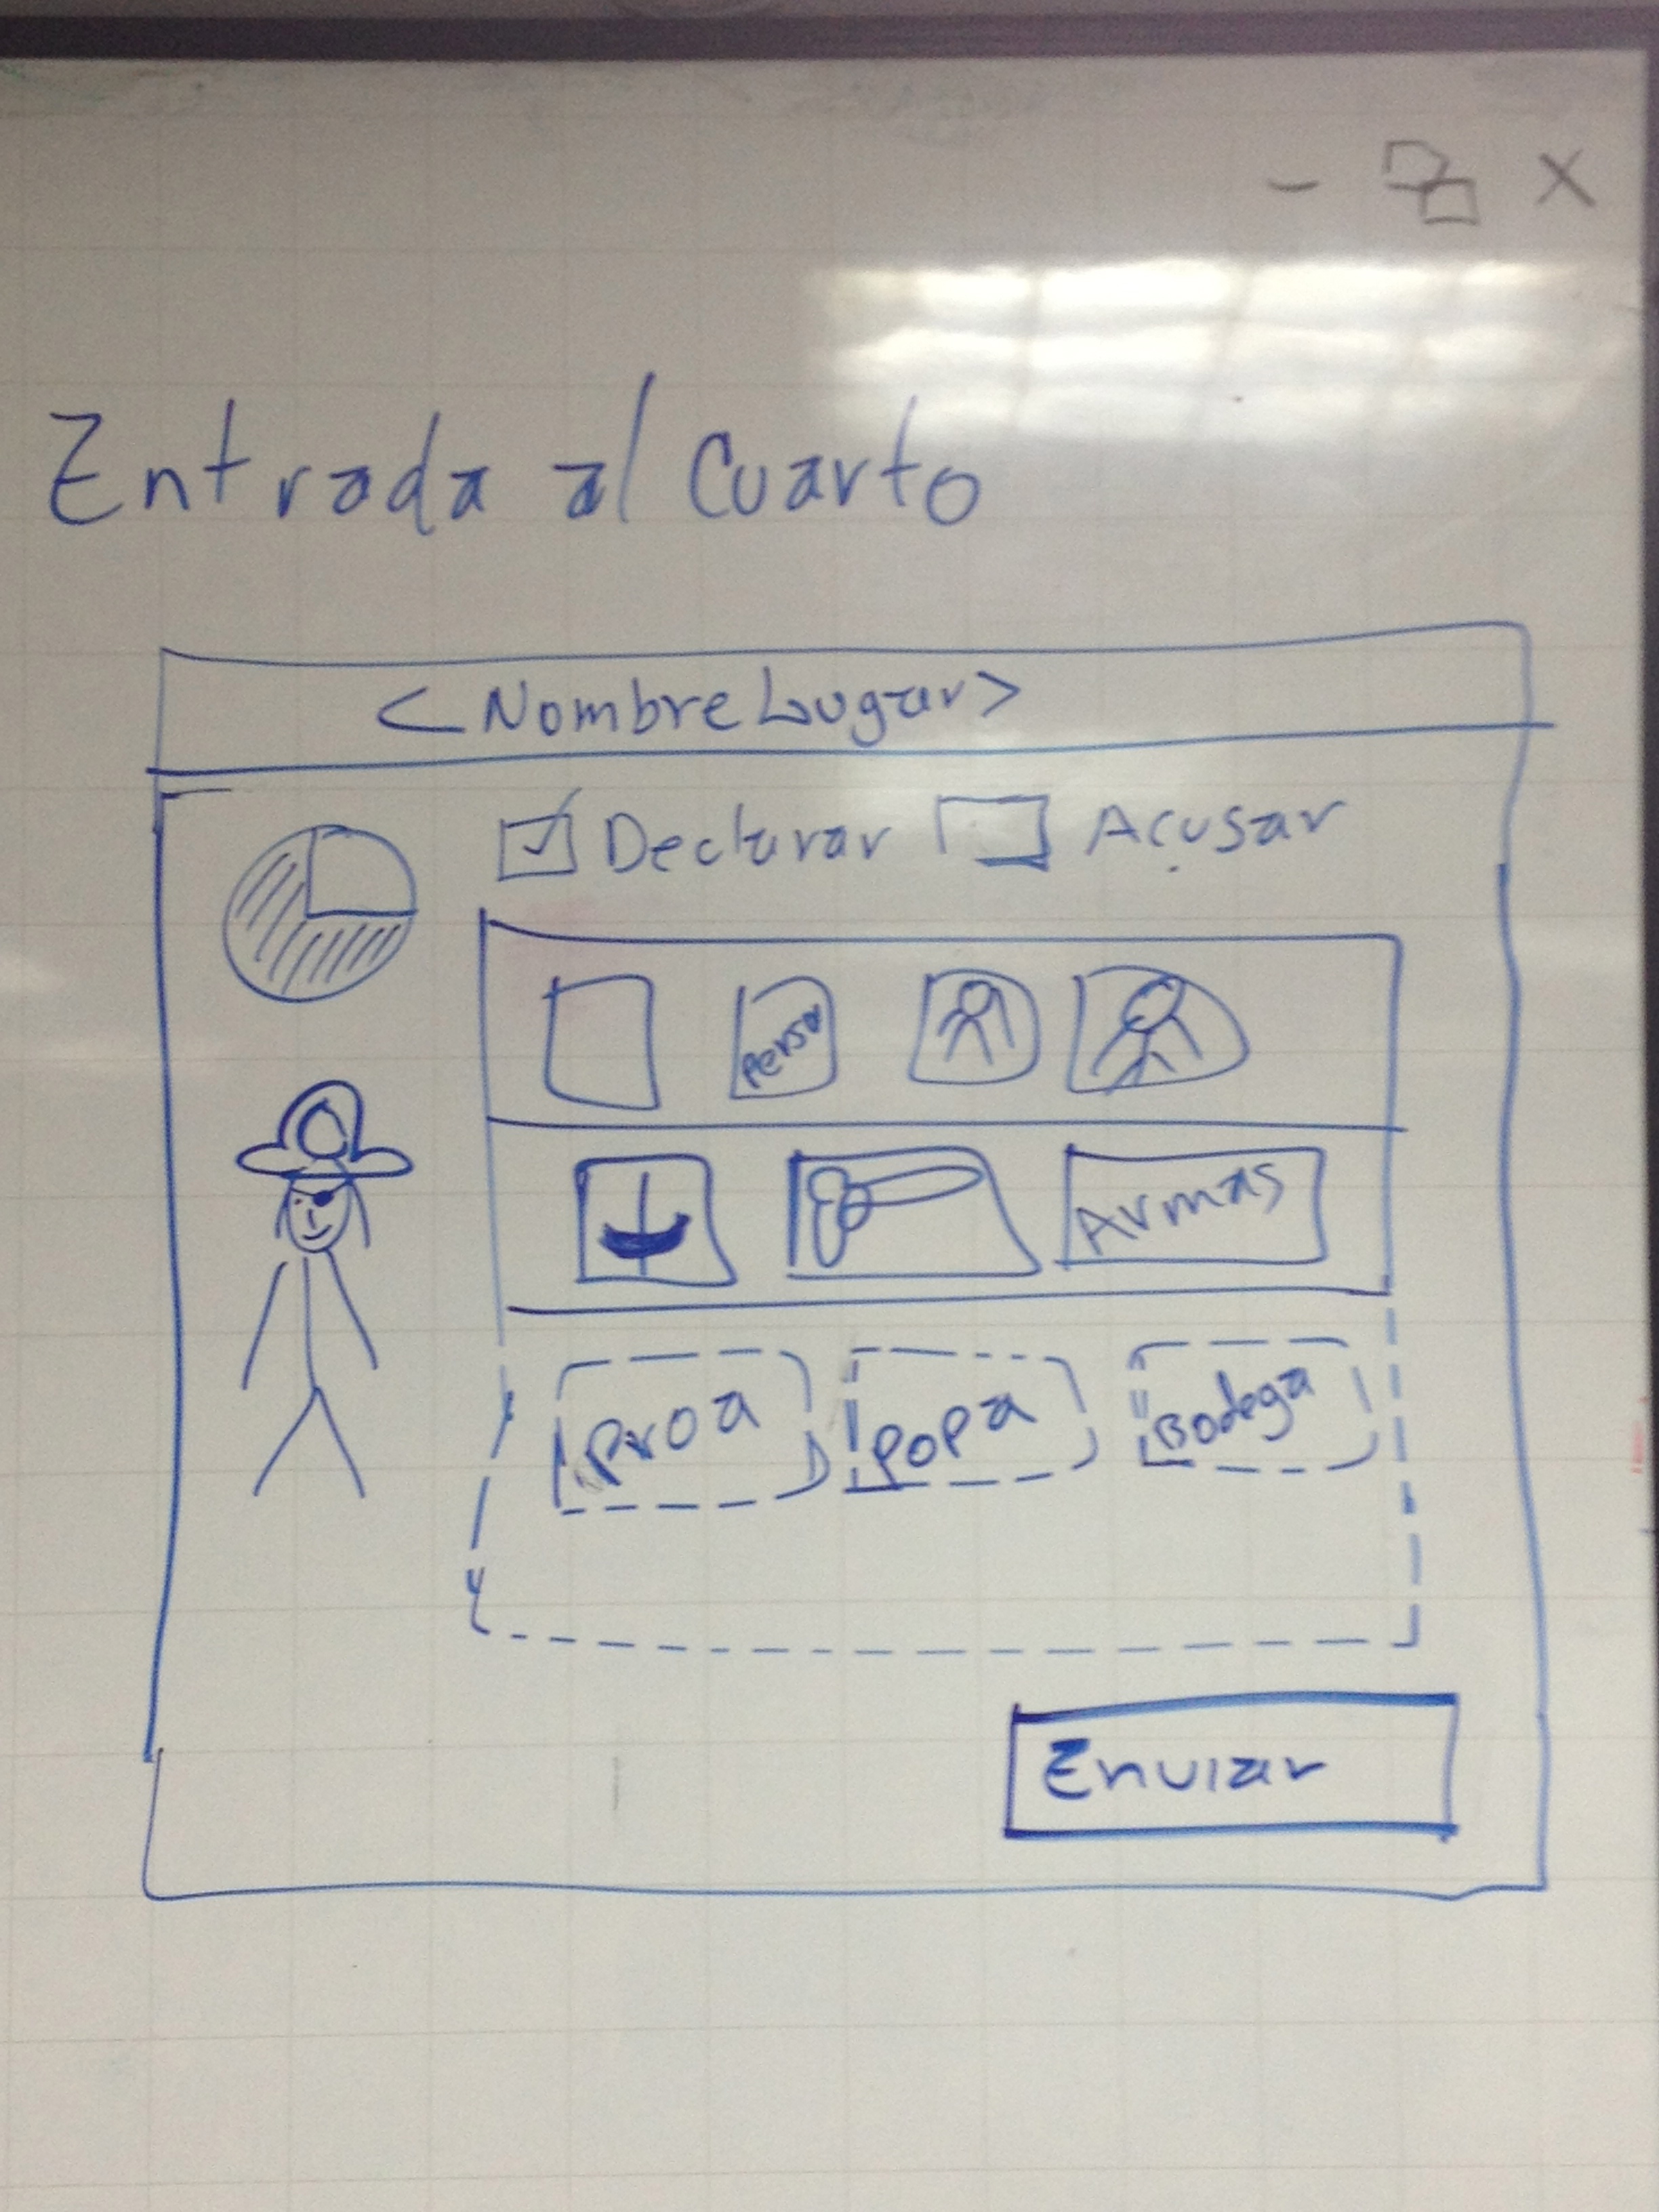 Entrada al Cuarto
<NombreLugar>
Declarar Acusar
Perso
Armas
Proa Popa Bodega
Enviar